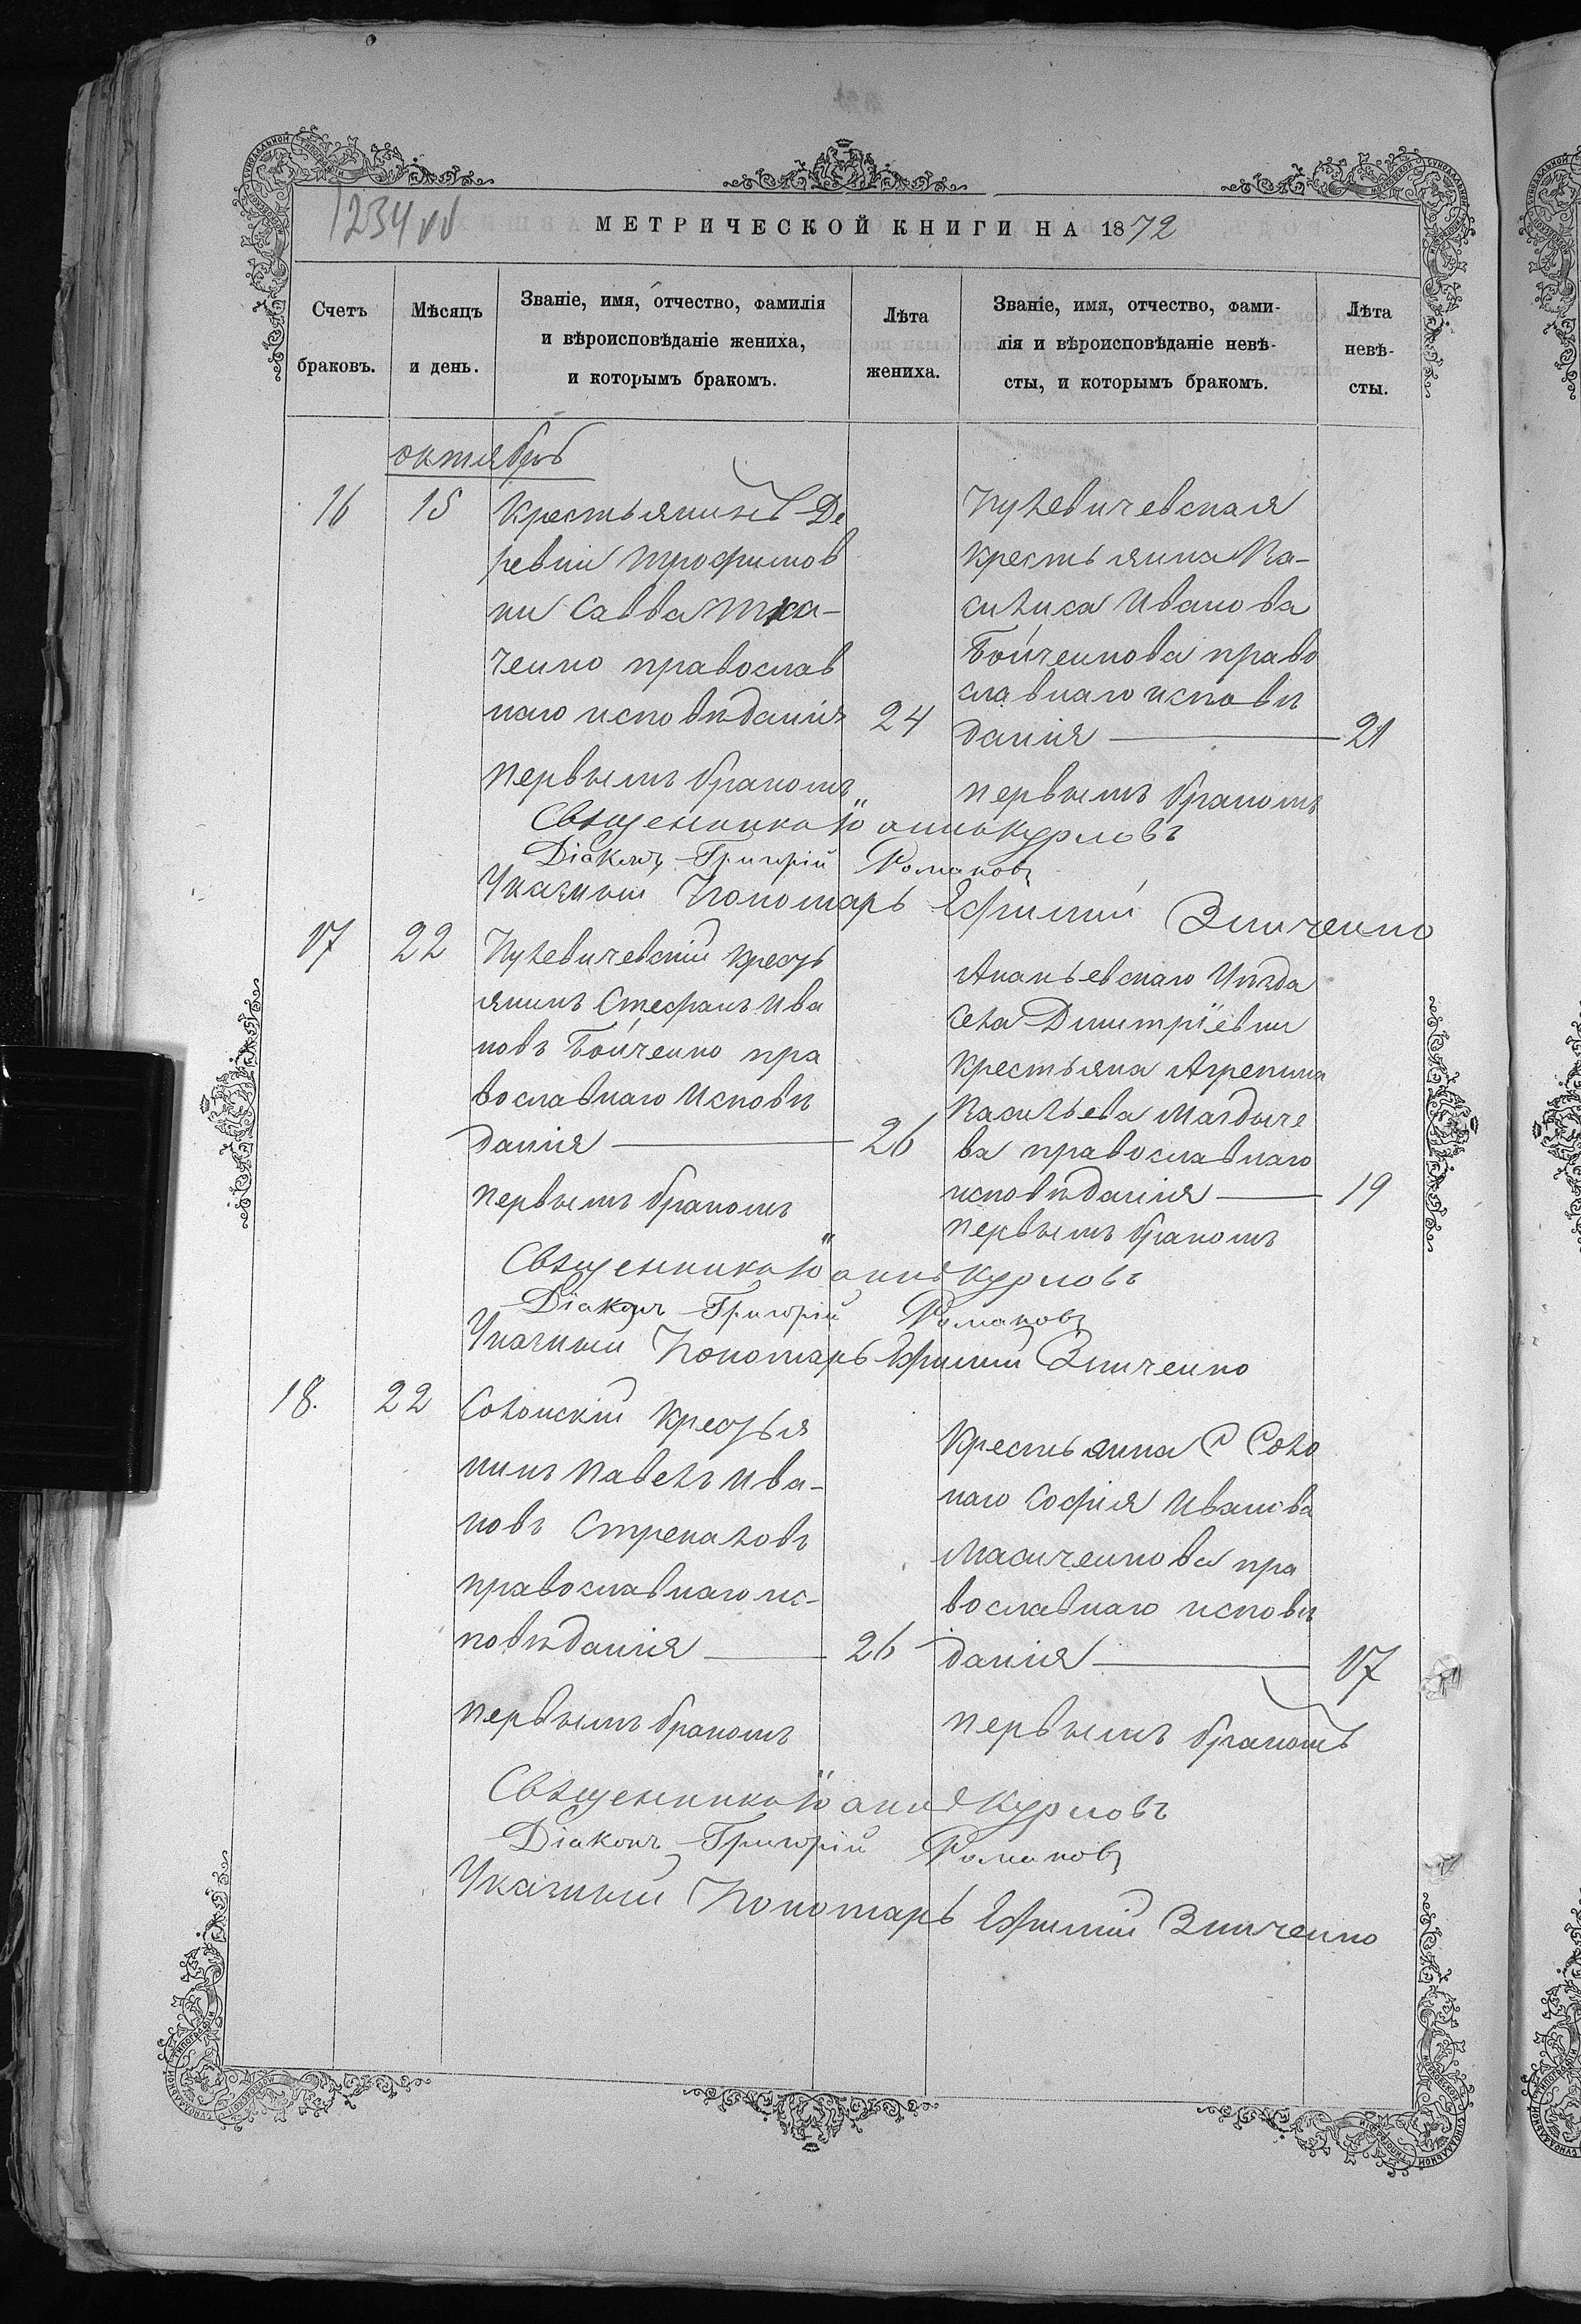 1234 об
МЕТРИЧЕСКОЙ КНИГИ НА 1872
Счетъ браковъ.
Мѣсяцъ и день.
Званіе, имя, отчество, фамилія
и вѣроисповѣданіе жениха,
и которымъ бракомъ.
Лѣта жениха.
Званіе, имя, отчество, фами-
лія и вѣроисповѣданіе невѣ-
сты, и которымъ бракомъ.
Лѣта невѣ-
сты.
октябрь
16
15
Крестьянинъ Де
ревни Трофимов
ки Савва Тка-
ченко православ
наго исповѣданія
24
первымъ бракомъ
Пужевичевская
крестьянка Ва-
силиса Иванова
Бойченкова право
славнаго исповѣ
данія — 21
первымъ бракомъ
Священникъ Іоаннъ Курловъ
Діаконъ Григорій Романовъ
Указный Пономарь Ефимій Зинченко
17
22
Пужевичевскій Кресть
янинъ Стефанъ Ива
новъ Бойченко пра
вославнаго Исповѣ
данія — 26
первымъ бракомъ
Ананьевскаго Уѣзда
села Димитріевки
крестьянка Агрепина
Васильева
ва православнаго
исповѣданія — 19
первымъ бракомъ
Священникъ Іоаннъ Курловъ
Діаконъ Григорій Романовъ
Указный Пономарь Ефимій Зинченко
18.
22
Солонскій Крестья
нинъ Павелъ Ива-
новъ Стрекаловъ
православнаго ис-
повѣданія — 26
первымъ бракомъ
Крестьянка С Соло
наго Софія Иванова
Масиченкова пра
вославнаго исповѣ
данія — 17
первымъ бракомъ
Священникъ Іоаннъ Курловъ
Діаконъ Григорій Романовъ
Указный Пономарь Ефимій Зинченко